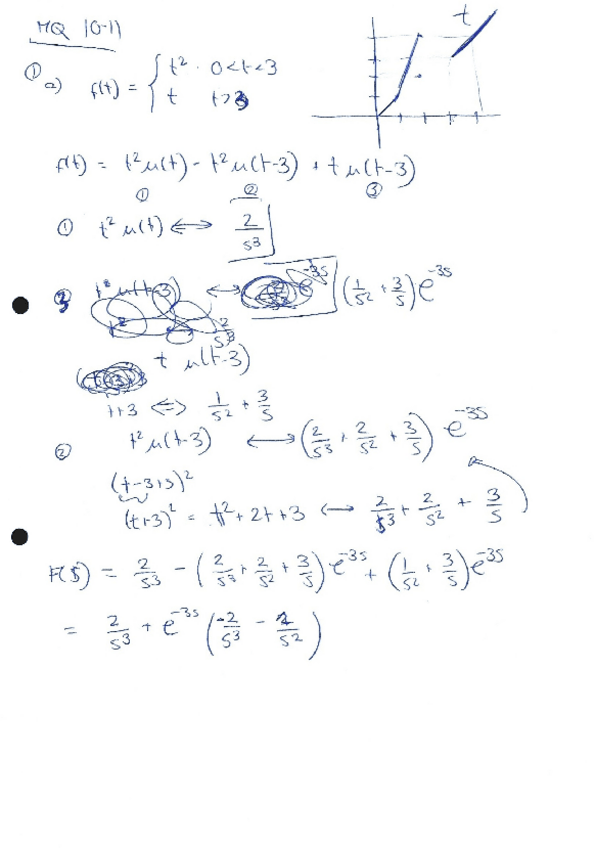 MQ 10-11
① a) f(t) = { t² · 0<t<3
t t>3
t
f(t) = t²u(t) - t²u(t-3) + t u(t-3)
① ② ③
① t²u(t) ↔ 2/s³
③ t²u(t-3) ↔ e^-3s (1/s² + 3/s) e^-3s
t² 2/s³
t u(t-3)
t+3 ⇔ 1/s² + 3/s
② t²u(t-3) ↔ (2/s³ + 2/s² + 3/s) e^-3s
(t-3+3)²
(t+3)² = t²+2t+3 ↔ 2/s³ + 2/s² + 3/s
F(s) = 2/s³ - (2/s³ + 2/s² + 3/s) e^-3s + (1/s² + 3/s) e^-3s
= 2/s³ + e^-3s (-2/s³ - 2/s²)